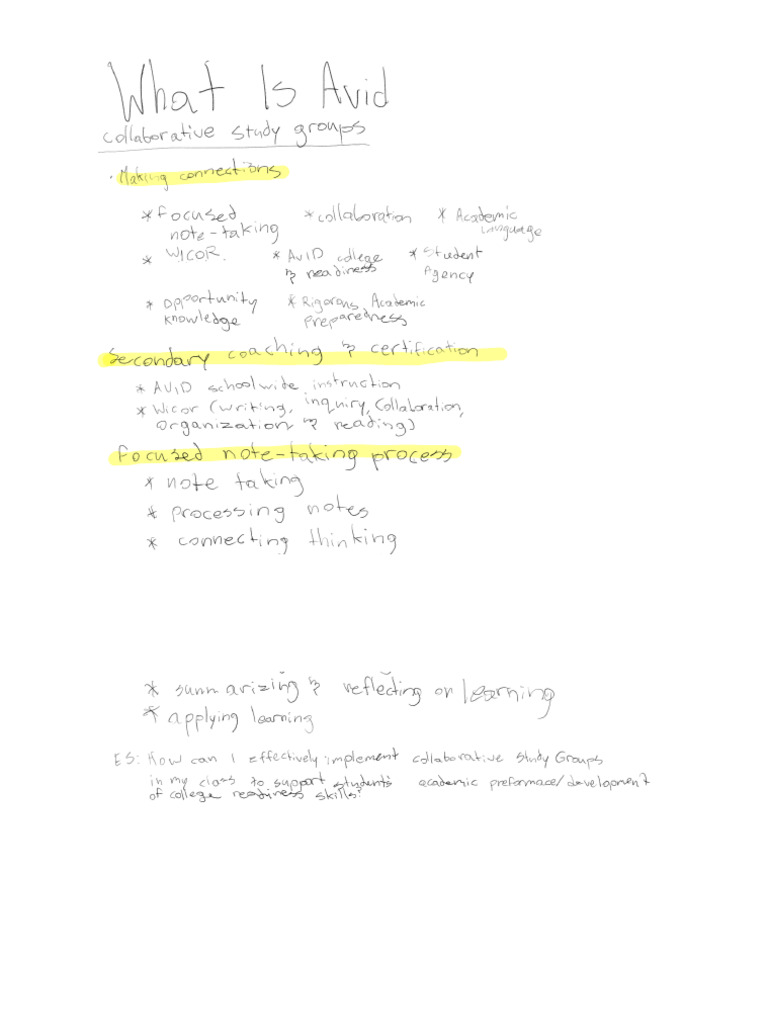 What Is Avid
collaborative study groups
· Making connections
* focused note-taking
* collaboration
* Academic Language
* WICOR.
* AVID college & readiness
* Student Agency
* Opportunity knowledge
* Rigorous Academic preparedness
Secondary coaching & certification
* AVID schoolwide instruction
* Wicor (writing, inquiry, Collaboration,
organization & reading)
focused note-taking process
* note taking
* processing notes
* connecting thinking
* summarizing & reflecting on learning
* applying learning
ES: How can I effectively implement collaborative Study Groups
in my class to support students academic preformace/development
of college readiness skills?